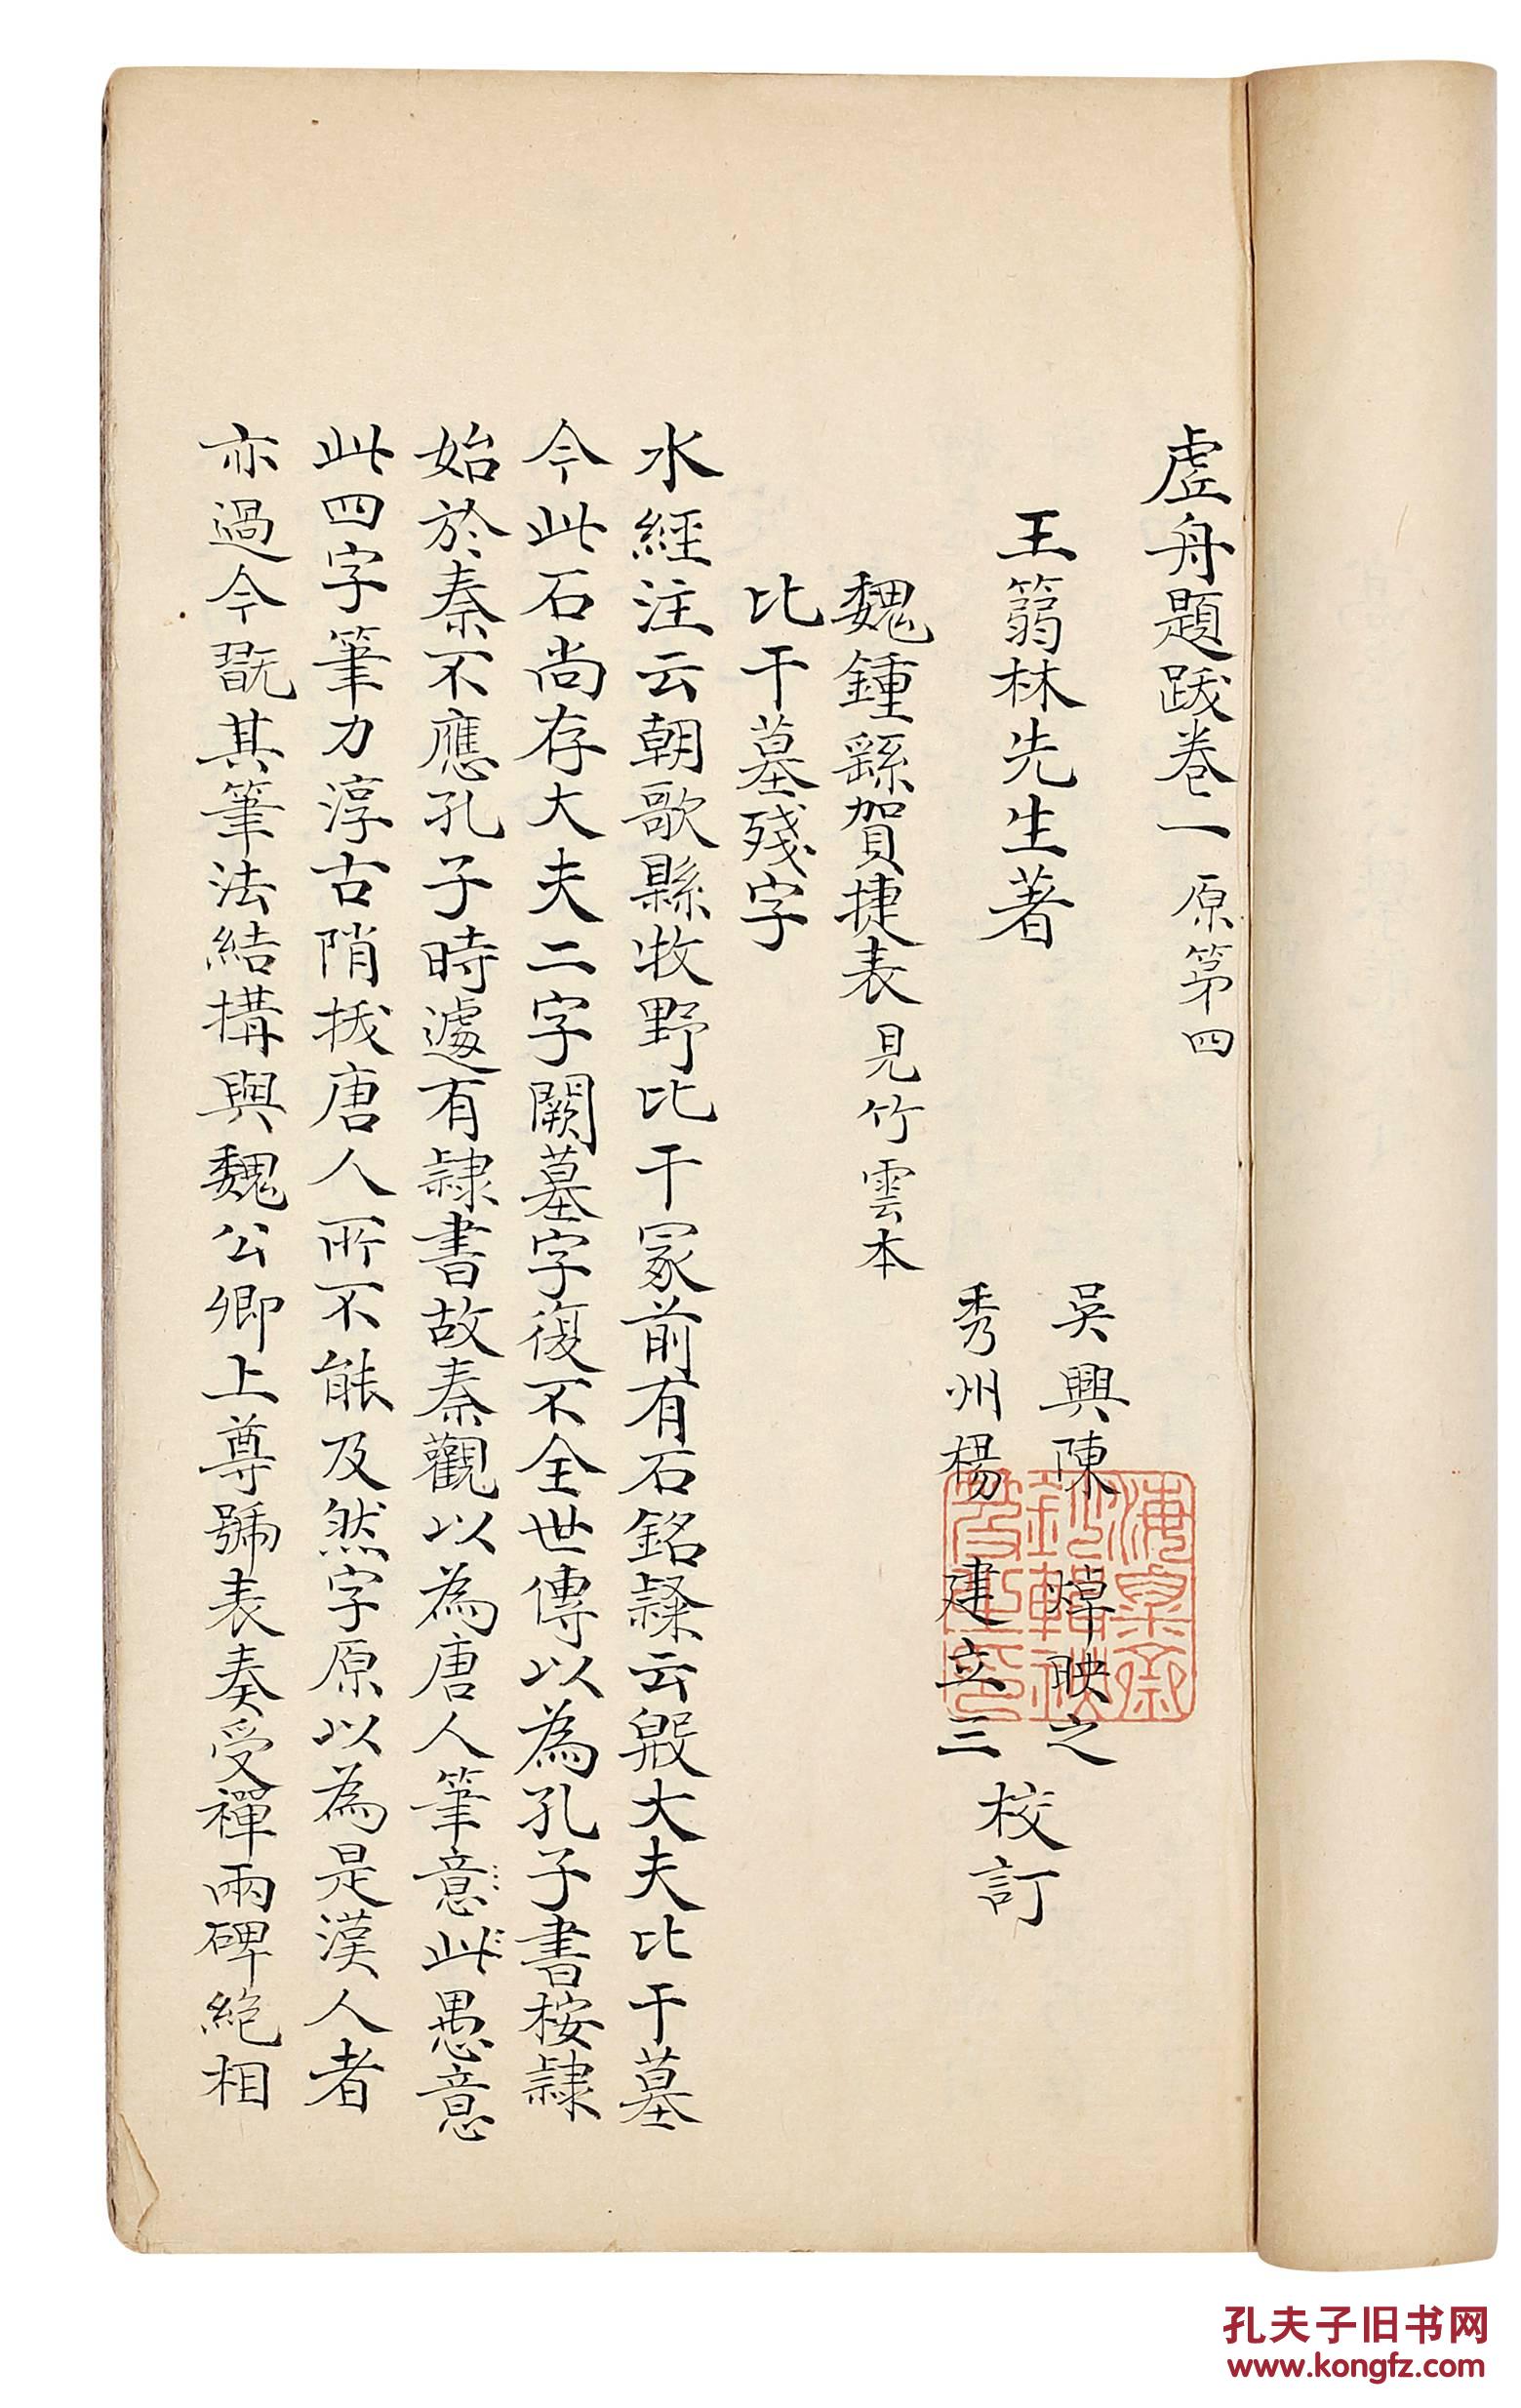 虚舟題跋卷一 原第四
王篛林先生著
吳興陳焯映之
秀州楊建立三
校訂
魏鍾繇賀捷表 見竹雲本
比干墓殘字
水經注云朝歌縣牧野比干冢前有石銘隸云殷大夫比干墓
今此石尚存大夫二字闕墓字復不全世傳以為孔子書桉隸
始於秦不應孔子時遽有隸書故秦觀以為唐人筆意此愚意
此四字筆力淳古陗拔唐人所不能及然字原以為是漢人者
亦過今翫其筆法結構與魏公卿上尊號表奏受禪兩碑絕相
孔夫子旧书网
www.kongfz.com